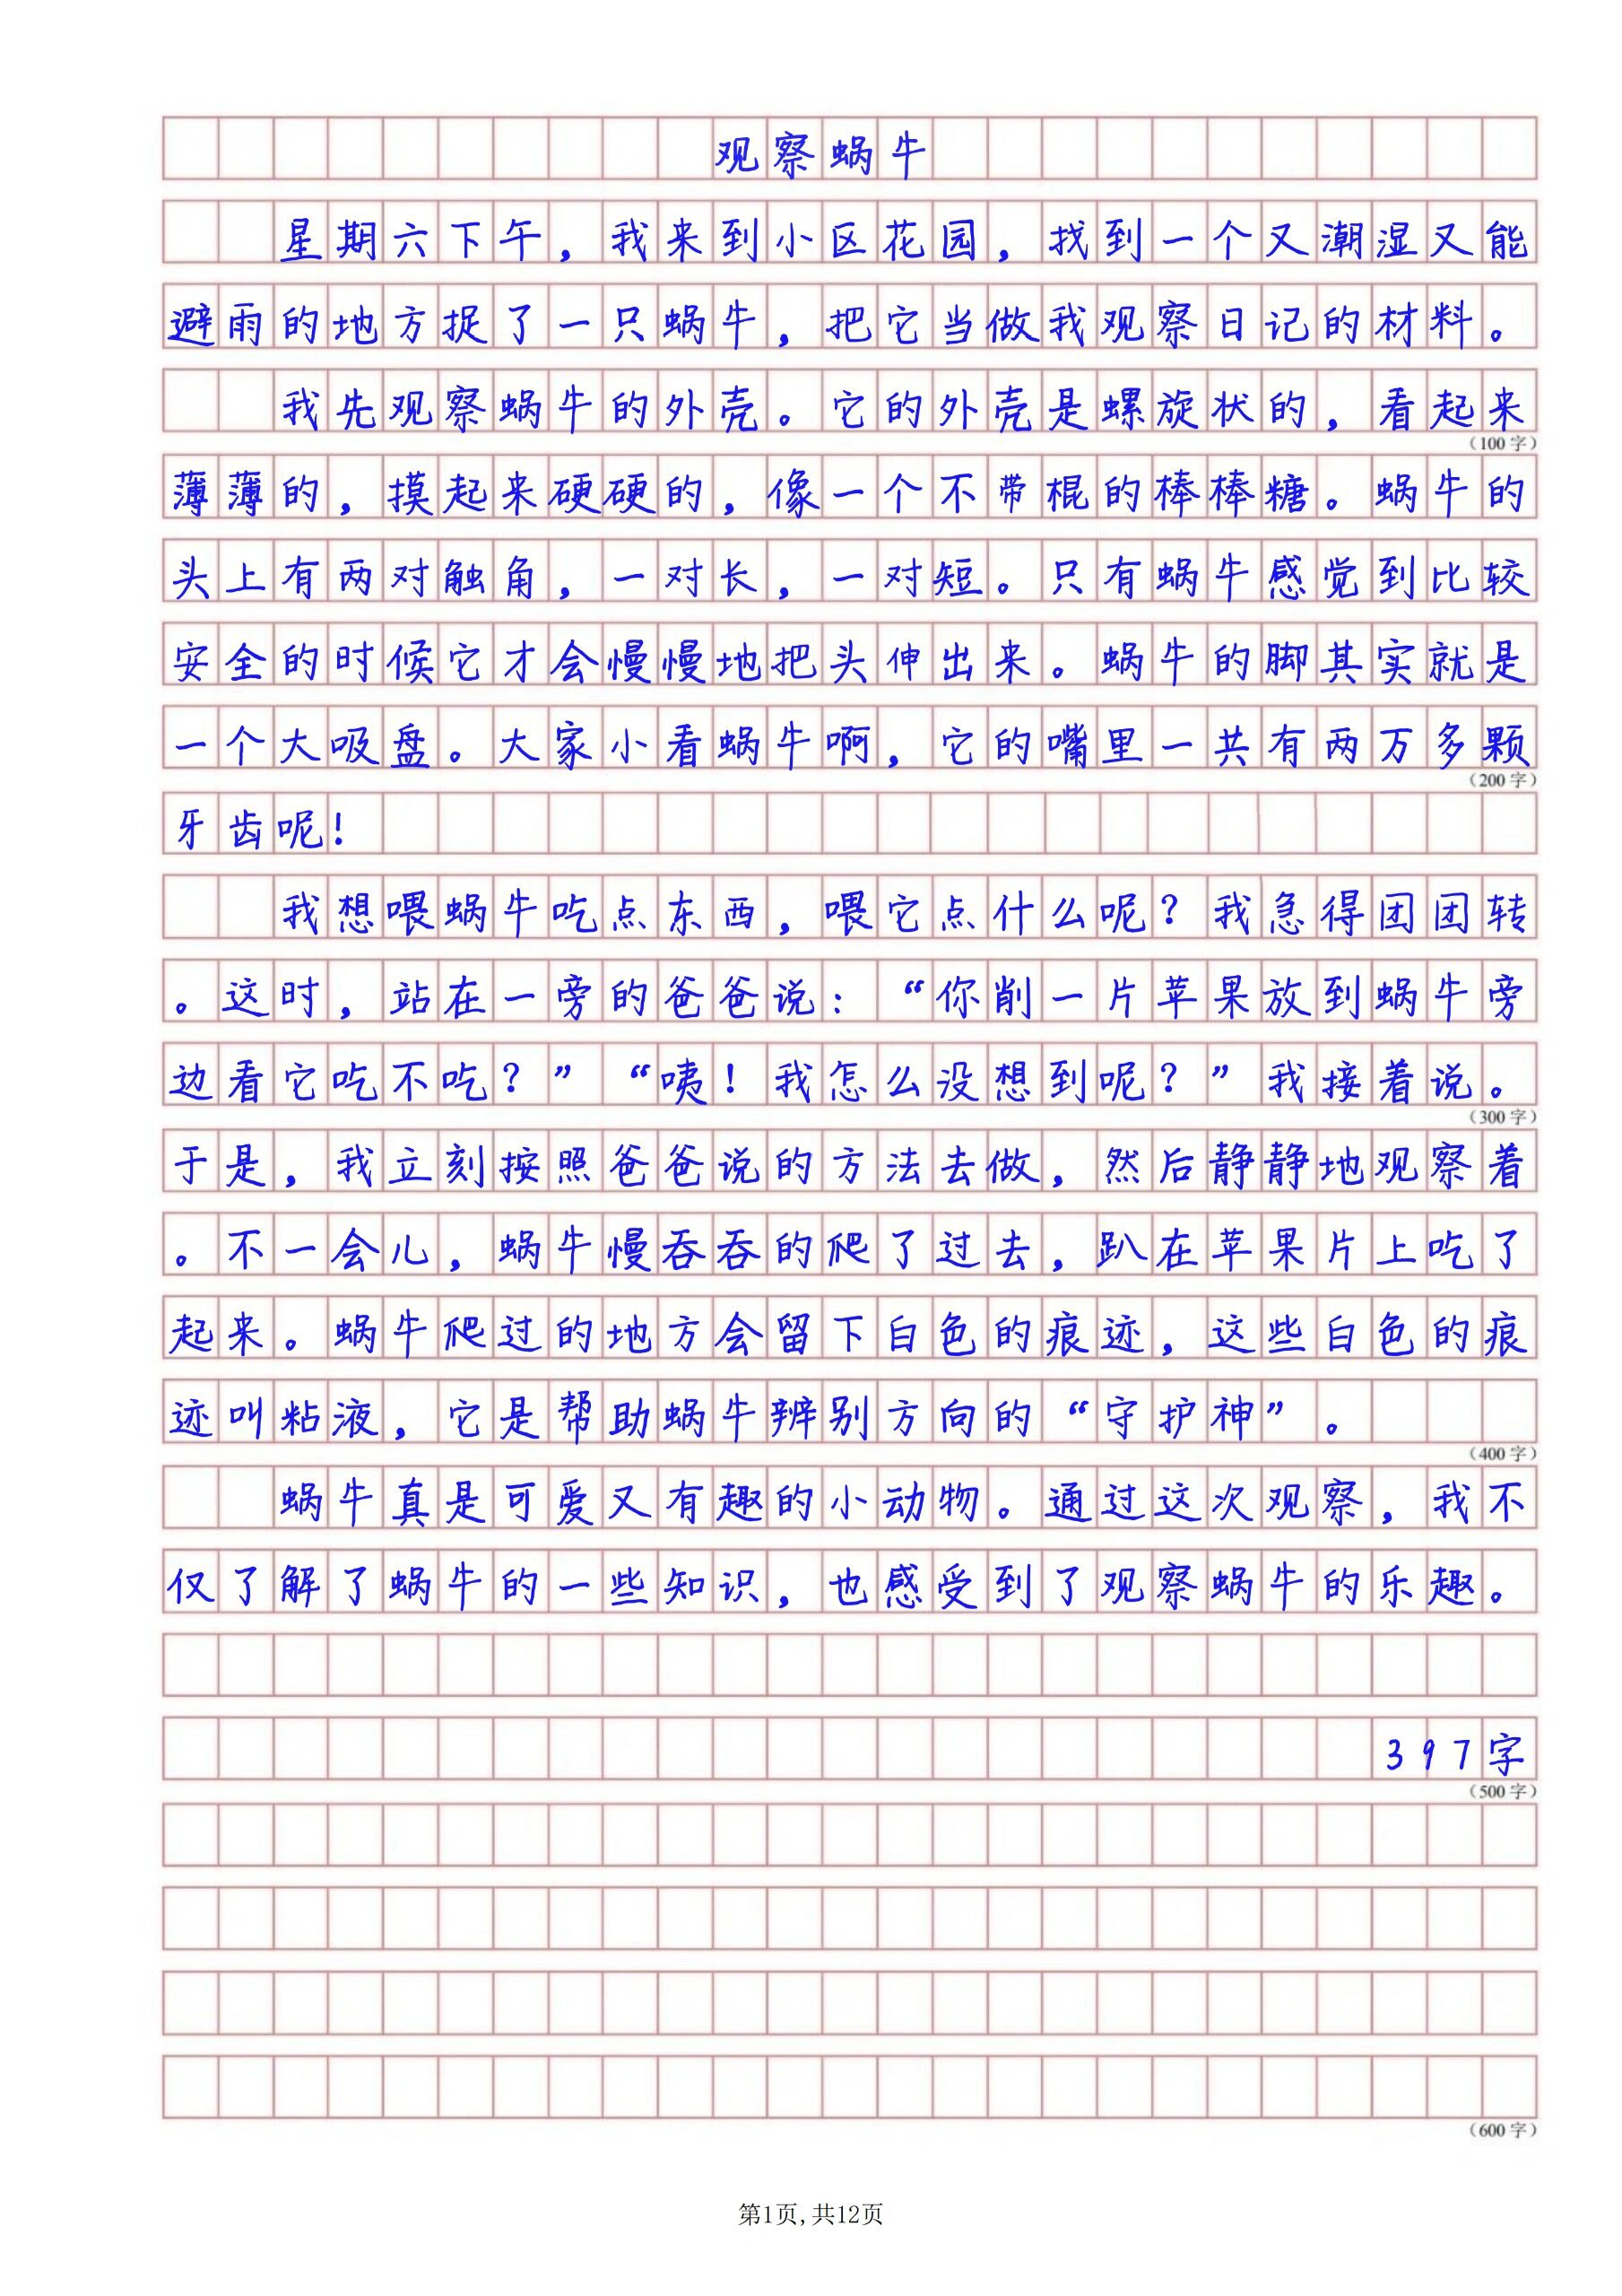 观察蜗牛
星期六下午，我来到小区花园，找到一个又潮湿又能
避雨的地方捉了一只蜗牛，把它当做我观察日记的材料。
我先观察蜗牛的外壳。它的外壳是螺旋状的，看起来
（100字）
薄薄的，摸起来硬硬的，像一个不带棍的棒棒糖。蜗牛的
头上有两对触角，一对长，一对短。只有蜗牛感觉到比较
安全的时候它才会慢慢地把头伸出来。蜗牛的脚其实就是
一个大吸盘。大家小看蜗牛啊，它的嘴里一共有两万多颗
（200字）
牙齿呢！
我想喂蜗牛吃点东西，喂它点什么呢？我急得团团转
。这时，站在一旁的爸爸说：“你削一片苹果放到蜗牛旁
边看它吃不吃？”“咦！我怎么没想到呢？”我接着说。
（300字）
于是，我立刻按照爸爸说的方法去做，然后静静地观察着
。不一会儿，蜗牛慢吞吞的爬了过去，趴在苹果片上吃了
起来。蜗牛爬过的地方会留下白色的痕迹，这些白色的痕
迹叫粘液，它是帮助蜗牛辨别方向的“守护神”。
（400字）
蜗牛真是可爱又有趣的小动物。通过这次观察，我不
仅了解了蜗牛的一些知识，也感受到了观察蜗牛的乐趣。
397字
（500字）
（600字）
第1页,共12页